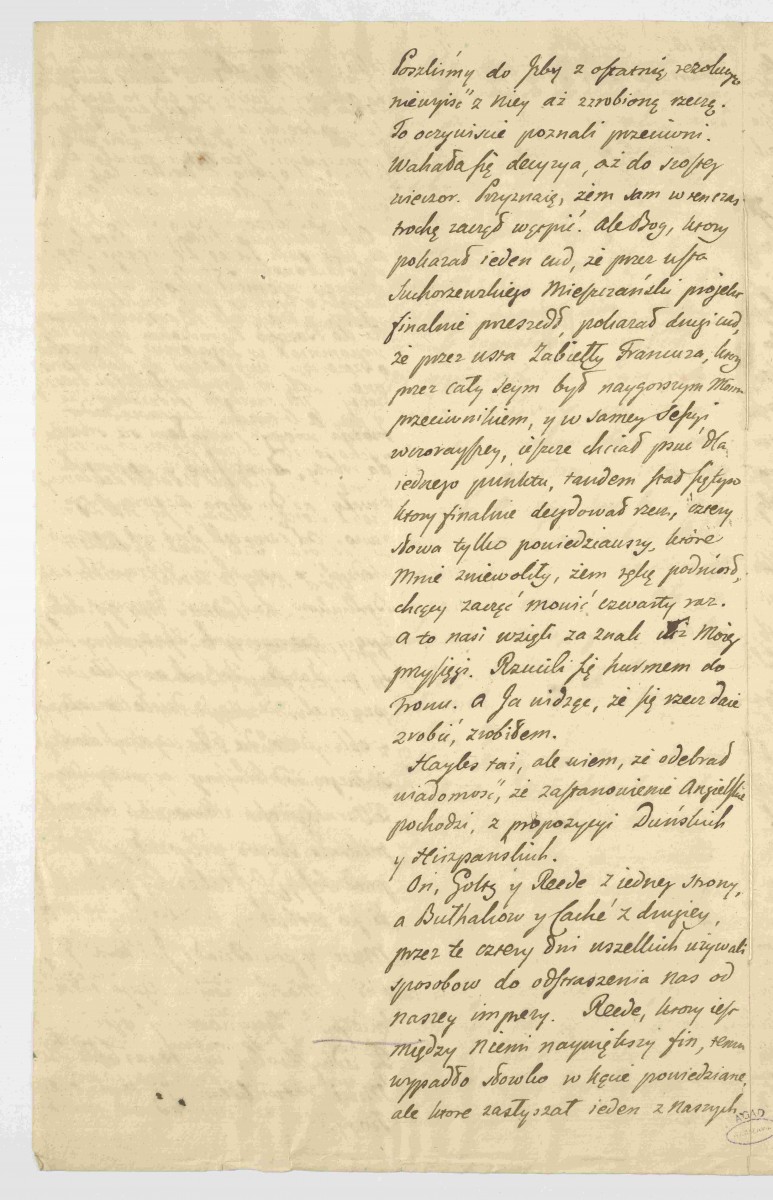 Poszliśmy do Jzby z ostatnią rezolucyą
niewyiść z niey aż zrobioną rzeczą.
To oczywiscie poznali przeciwni.
Wahała się decyzya, aż do szostey
wieczor. Przyznaię, żem sam wtenczas
trochę zaczął wątpić. Ale Bog, ktory
pokazał ieden cud, że przez usta
Suchorzewskiego Mieszczański projekt
finalnie przeszedł, pokazał drugi cud,
że przez usta Zabiełły Francuza, ktory
przez cały Seym był naygorszym Moim
przeciwnikiem, y w samey Sessyi
wczorayszey, ieszcze chciał psuć dla
iednego punktu, tandem stał się tym
ktory finalnie decydował rzecz, cztery
słowa tylko powiedziawszy, które
Mnie zniewoliły, żem rękę podniosł,
chcący zacząć mowić czwarty raz.
A to nasi wzięli za znak już Moiey
przysięgi. Rzucili się hurmem do
Tronu. A Ja widząc, że się rzecz daie
zrobić, zrobiłem.
Hayles tai, ale wiem, że odebrał
wiadomość, że zastanowienie Angielskie
pochodzi, z propozycyi Duńskich
y Hiszpańskich.
On, Goltz y Reede z iedney strony,
a Bulhakow y Caché z drugiey,
przez te cztery dni wszelkich używali
sposobow do odstraszenia nas od
naszey imprezy. Reede, ktory iest
między Niemi naywiększy fin, temu
wypadło słowko w kącie powiedziane,
ale ktore zasłyszał ieden z naszych,
AGAD